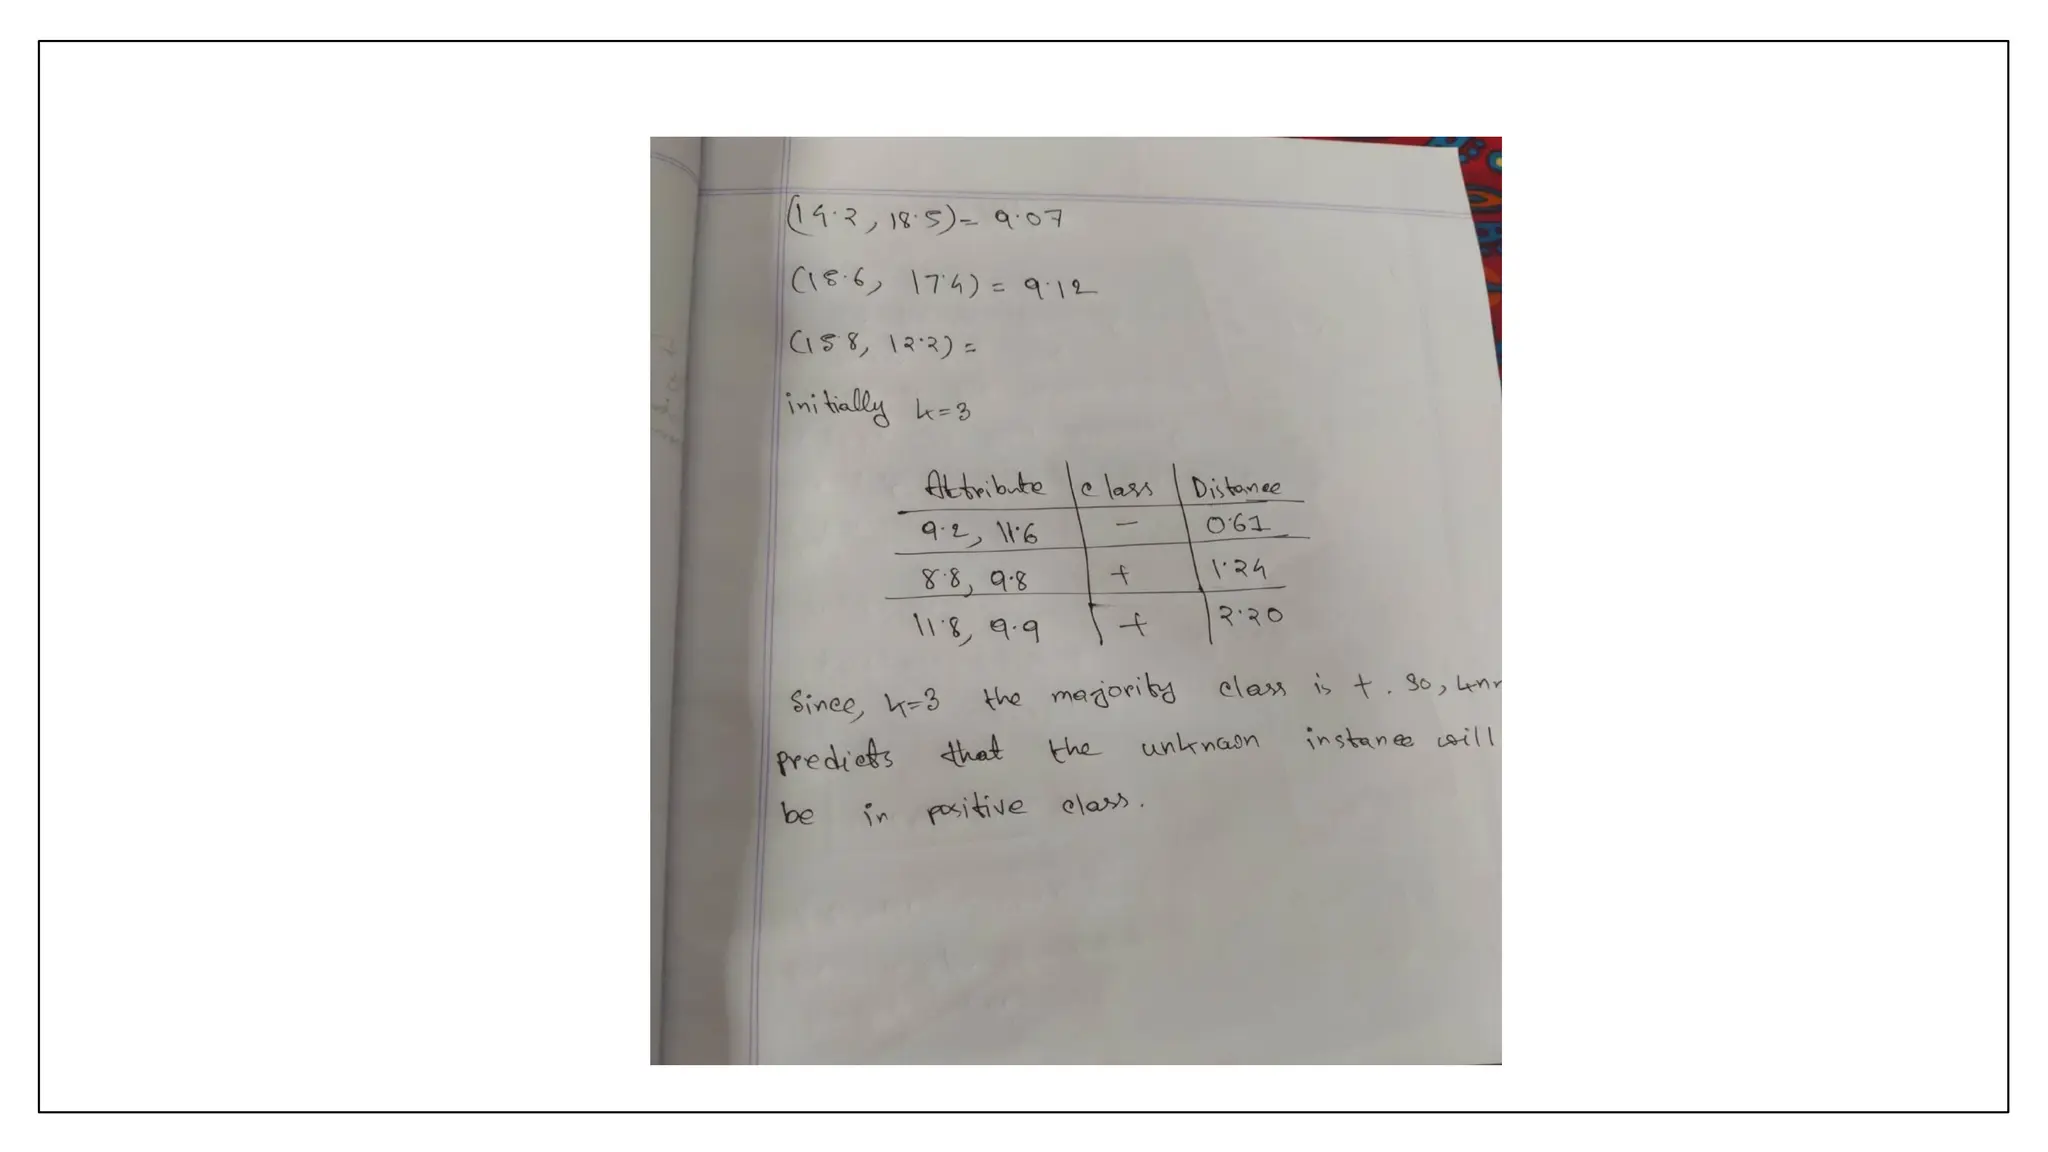 (14.2, 18.5) = 9.07
(18.6, 17.4) = 9.12
(15.8, 12.2) =
initially k=3
Attribute | class | Distance
9.2, 11.6 | - | 0.61
8.8, 9.8 | + | 1.24
11.8, 9.9 | + | 2.20
Since, k=3 the majority class is +. So, knn
predicts that the unknown instance will
be in positive class.